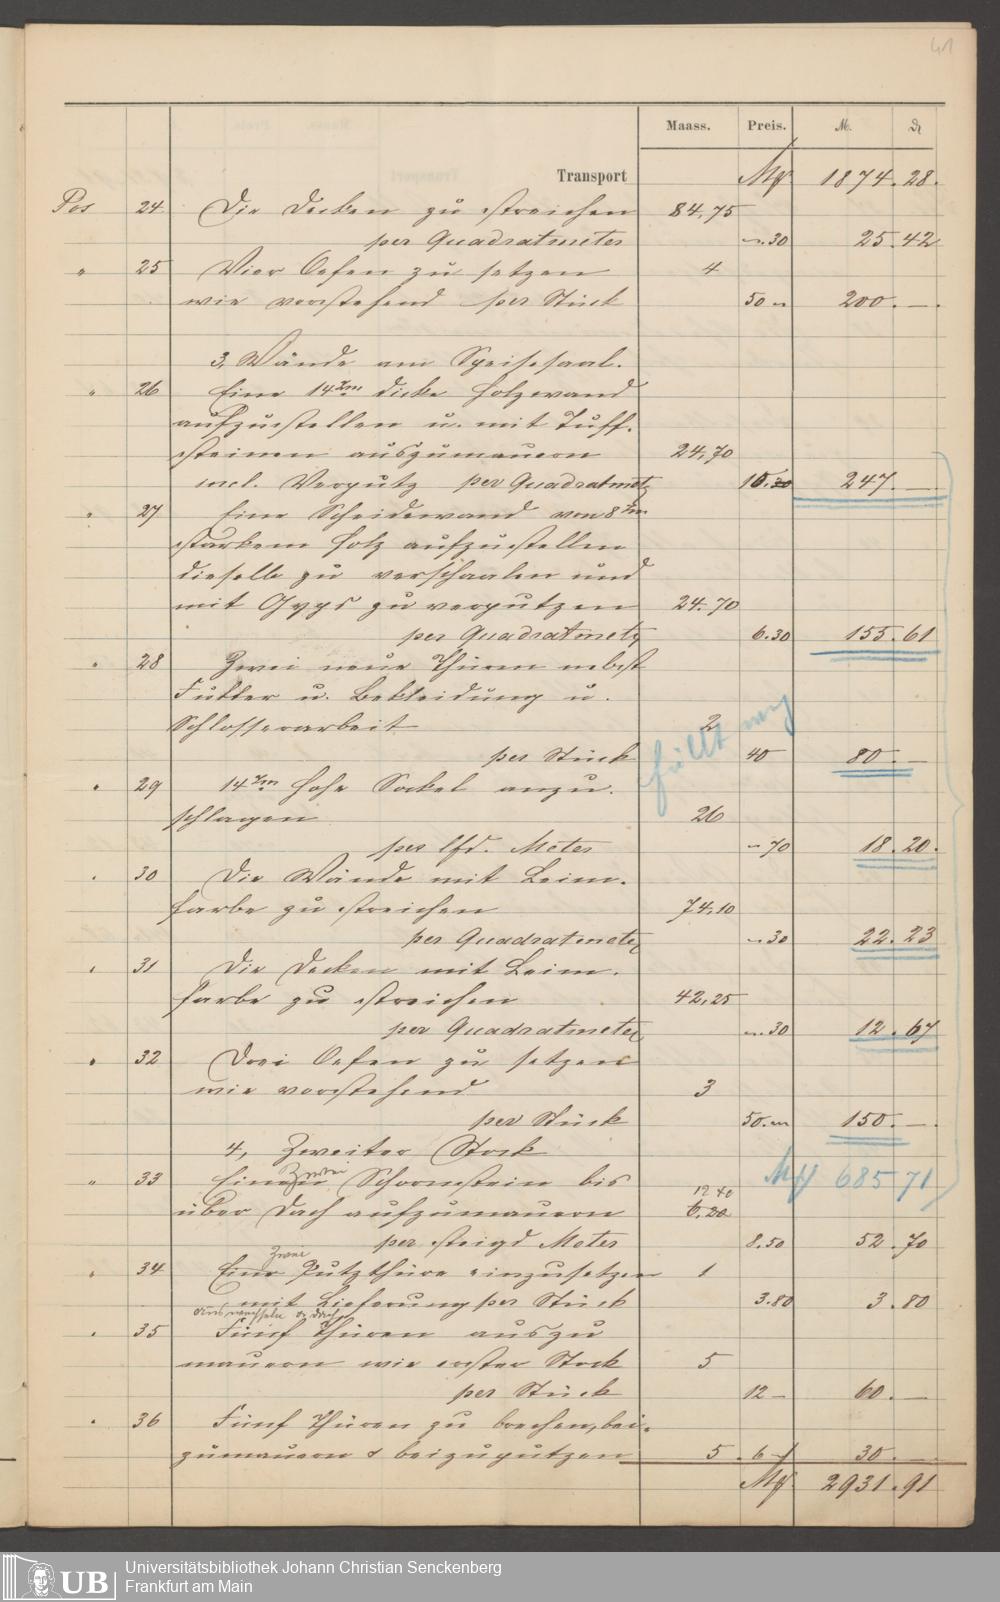 41
Maass. Preis. M. ₰
Transport Mk 1874.28.
Pos 24 Die Decken zu streichen 84,75
per Quadratmeter -.30 25.42
" 25 Vier Oefen zu setzen 4
wie vorstehend per Stück 50 - 200.—.
3, Wände am Speisesaal.
" 26 Eine 14 cm dicke Holzwand
aufzustellen u. mit Tuff-
steinen auszumauern 24,70
incl. Verputz per Quadratmet 10. 247.—
" 27 Eine Scheidewand von 8 cm
starkem Holz aufzustellen
dieselbe zu verschaalen und
mit Gyps zu verputzen 24.70
per Quadratmet 6.30 155.61
" 28 Zwei neue Thüren nebst
Futter u. Bekleidung u.
Schlosserarbeit 2
per Stück 40 80.—
fällt weg
" 29 14 cm hohe Sockel anzu-
schlagen 26
per lfd. Meter -70 18.20.
" 30 Die Wände mit Leim-
farbe zu streichen 74,10
per Quadratmeter -.30 22.23
" 31 Die Decken mit Leim-
farbe zu streichen 42,25
per Quadratmeter -.30 12.67
" 32 Drei Oefen zu setzen
wie vorstehend 3
per Stück 50.- 150.—.
4, Zweiter Stock
Mk 685 71
" 33 Einen Zwei Schornstein bis 12 40
über Dach aufzumauern 6.20
per steigd Meter 8.50 52.70
Zwei
" 34 Eine Putzthüre einzusetzen 1
mit Lieferung per Stück 3.80 3.80
auswechseln
" 35 Fünf Thüren auszu
mauern wie erster Stock 5
per Stück 12 - 60.—
" 36 Fünf Thüren zu brechen, bei-
zumauern & beizuputzen 5 . 6 - 30.—
Mk 2931.91
UB Universitätsbibliothek Johann Christian Senckenberg
Frankfurt am Main